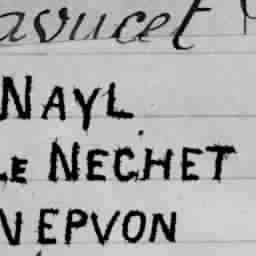 avucet
NAYL
LE NECHET
NEPVON